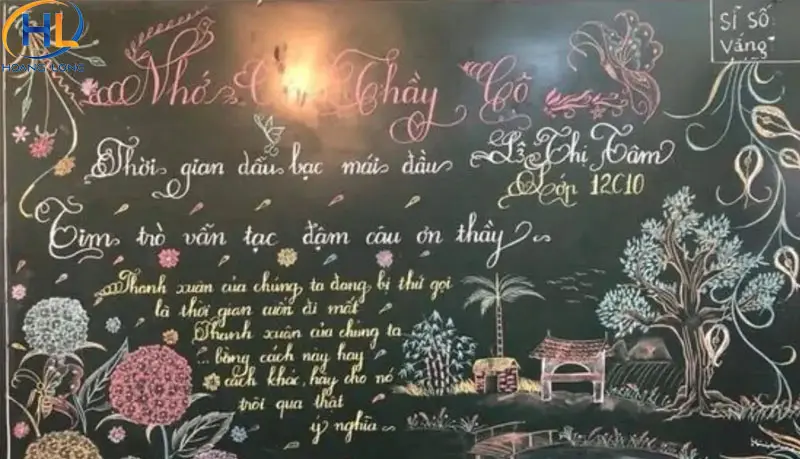 HL
SĨ SỐ
Vắng:
Nhớ Thầy Cô
Thời gian dẫu bạc mái đầu
Lê Thị Tâm
Lớp 12C10
Tim trò vẫn tạc đậm câu ơn thầy
Thanh xuân của chúng ta đang bị thứ gọi
là thời gian cuốn đi mất
Thanh xuân của chúng ta
... bằng cách này hay
cách khác, hãy cho nó
trôi qua thật
ý nghĩa